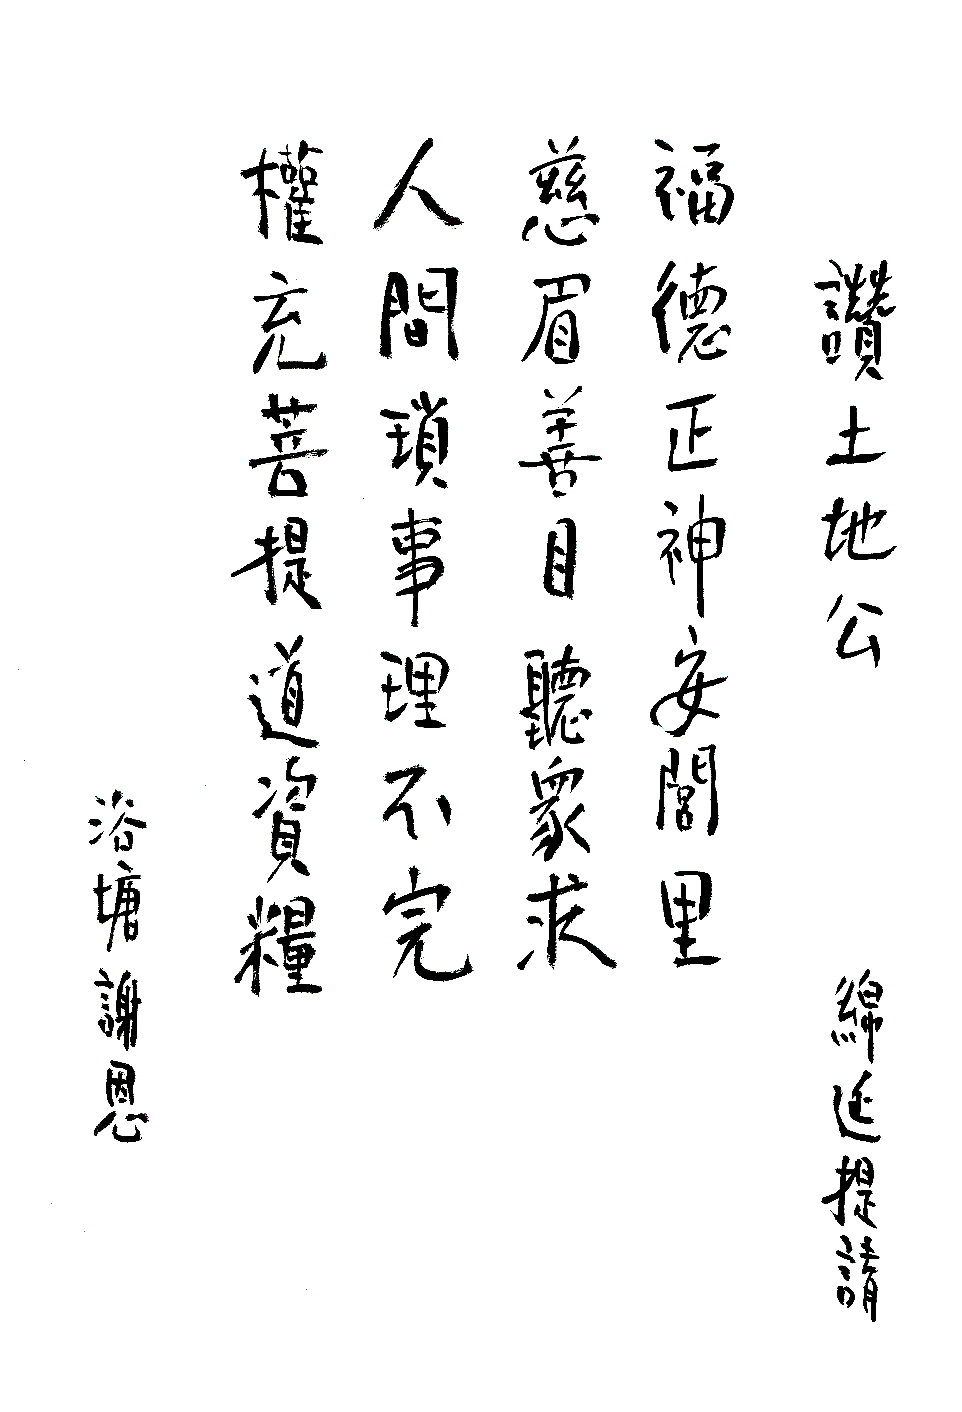 讚土地公
綿延提請
福德正神安閭里
慈眉善目聽眾求
人間瑣事理不完
權充菩提道資糧
浴塘謝恩